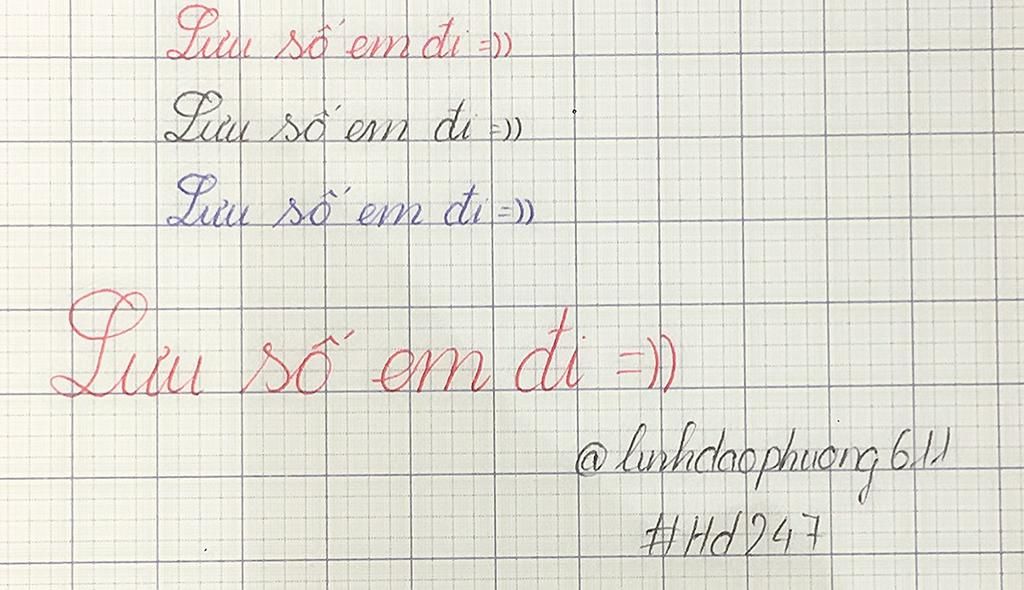 Lưu số em đi =))
Lưu số em đi =))
Lưu số em đi =))
Lưu số em đi =))
@linhdaophuong611
#Hd247